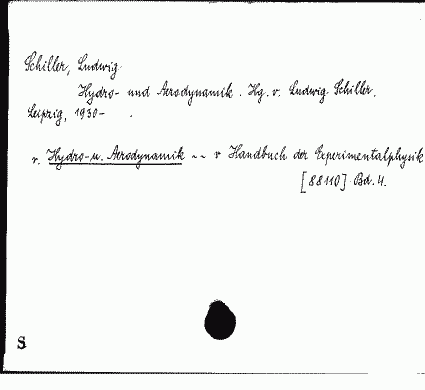 Schiller, Ludwig
Hydro- und Aerodynamik. Hg. v. Ludwig Schiller.
Leipzig, 1930- .
v. Hydro- u. Aerodynamik ~~ v Handbuch der Experimentalphysik
[88110] Bd. 4.
S